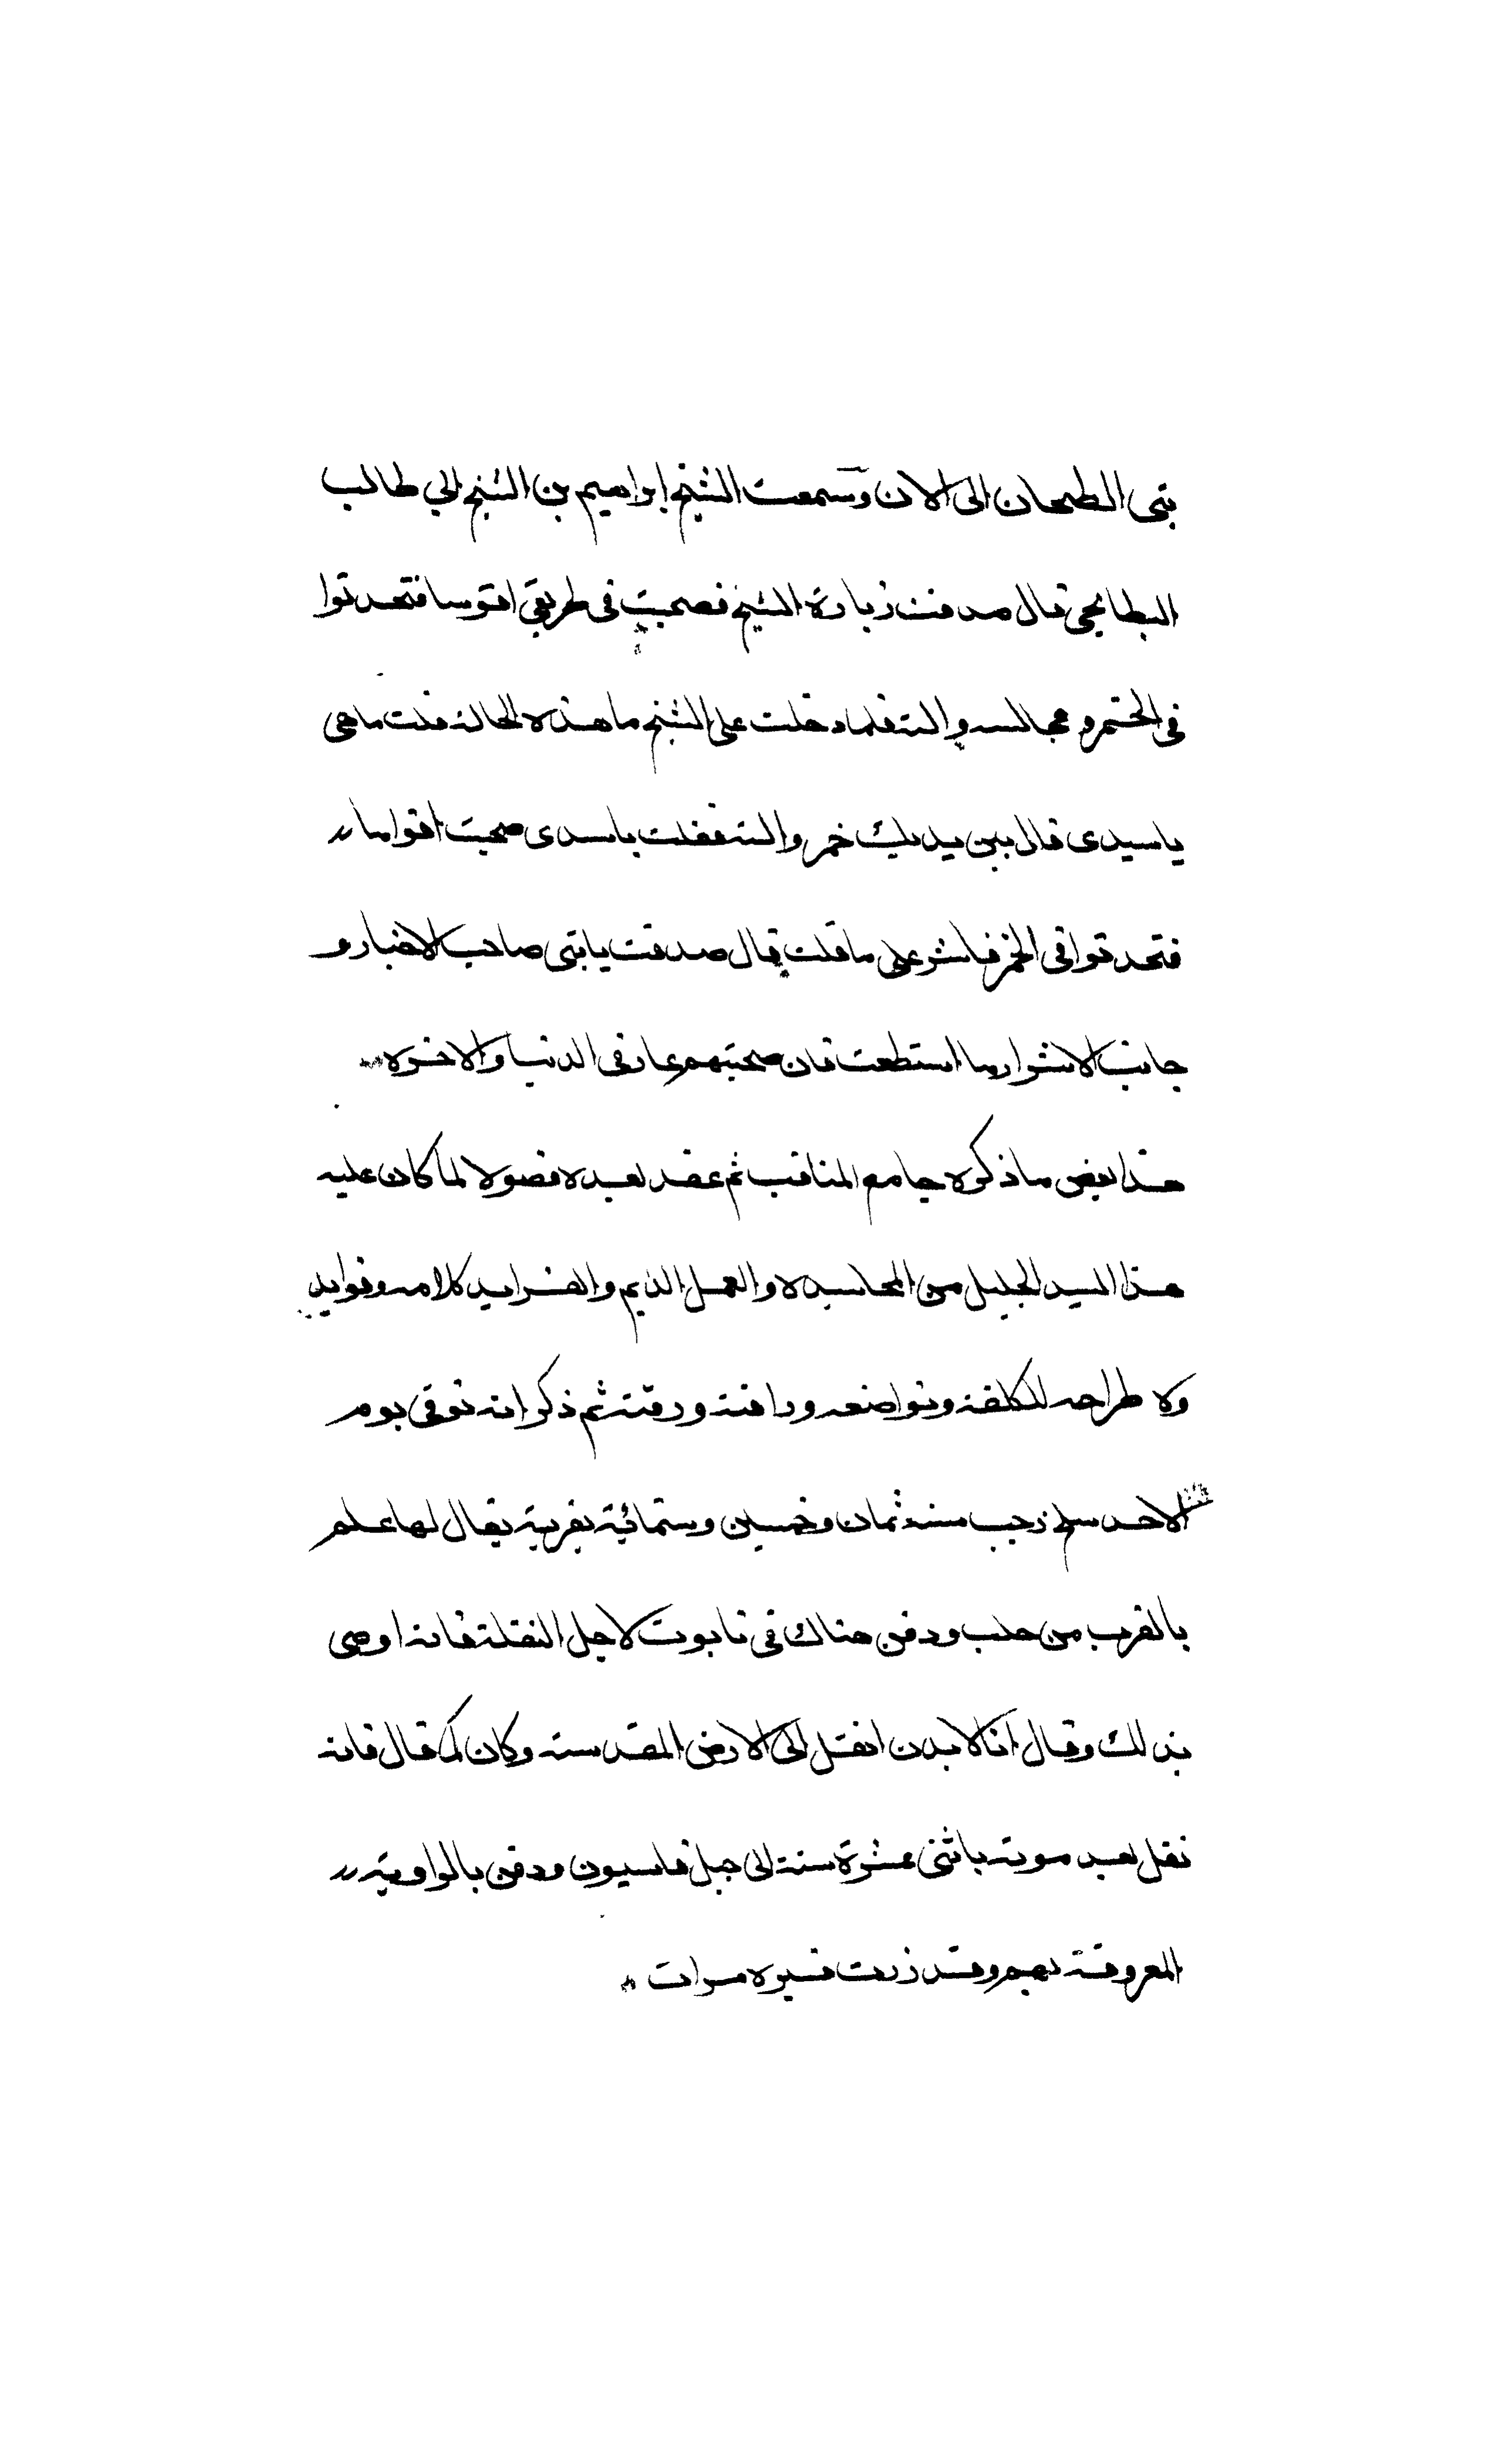 بنى الطحان الى الان وسمعت الشيخ ابراهيم بن الشيخ ابي طالب
البطايحي قال صدفت زيارة الشيخ فصحبت في طريقي اقوسا فتحدثوا
في الخمر و مجالسه والته فلما دخلت على الشيخ ما هذه الحالة قلت ما هي
ياسيدى قال بين يديك خمر والته فقلت ياسدى صحبت اقواما
فتحدثوا في الخمر فاشر على ما قلت قال صدقت يا بنى صاحب الاخيار و
جانب الاشرار ما استطعت فان صحبتهم عار في الدنيا والاخره
هذا بعض ما ذكره جامع المناقب ثم عقد بعده فصولا لما كان عليه
هذا السيد الجليل من المجاهده والعمل الدايم والفرايد كلامه وفوايد
ولا طراحه للكلفة وتواضعه ورافته ورقته ثم ذكر انه توفي يوم
الاحد سلخ رجب سنة ثمان وخمسين وستمائية بقرية يقال لها علم
بالقرب من حلب ودفن هناك في تابوت لاجل النقلة فانه اوصى
بذلك وقال انا لا بد ان انقل الى الارض المقدسة وكان كما قال فانه
نقل بعد موته باثنى عشرة سنة الى جبل قاسيون ودفن بالزاوية
المعروفة بهم وقد زرت قبره مرات